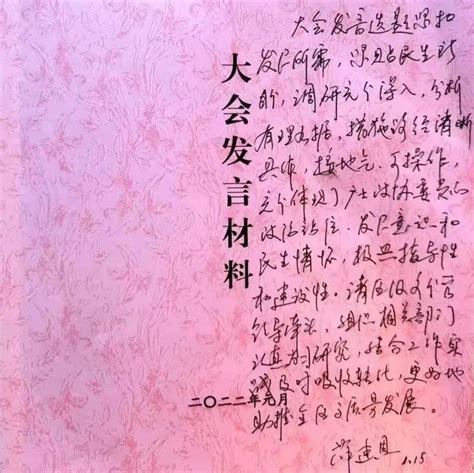 大会发言材料
二〇二二年元月
大会发言选题紧扣
发展所需，紧贴民生所
盼，调研充分深入，分析
有理有据，措施路径清晰
具体，接地气、可操作，
充分体现了广大政协委员的
政治站位、发展意识和
民生情怀，极具指导性
和建设性，请区级分管
领导牵头，组织相关部门
认真研究，结合工作实
践及时吸收转化，更好地
助推全区高质量发展。
1.15